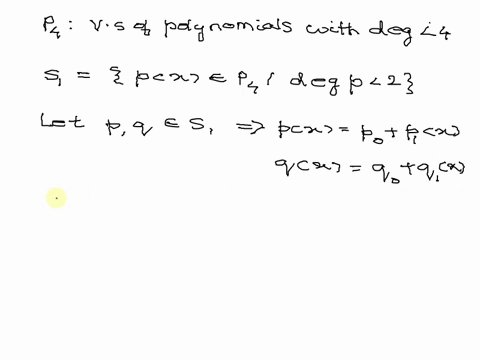 P₄ : v.s of polynomials with deg < 4
S₁ = { p(x) ∈ P₄ / deg p < 2 }
Let p, q ∈ S₁ ⇒ p(x) = p₀ + p₁(x)
q(x) = q₀ + q₁(x)